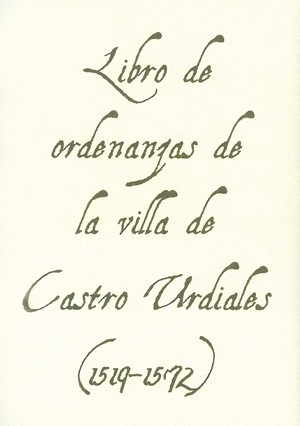 Libro de
ordenanzas de
la villa de
Castro Urdiales
(1519-1572)